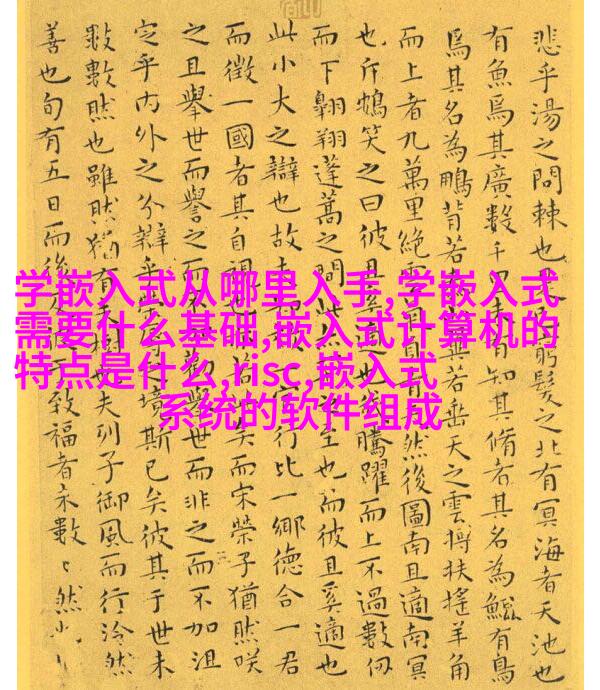 悲乎湯之問棘也窮髮之北有冥海者天池也
有魚焉其廣數千里未有知其脩者其名為鯤有鳥
焉其名為鵬背若若垂天之雲摶扶搖羊角
而上者九萬里絕雲然後圖南且適南冥
也斥鴳笑之曰彼且騰躍而上不過數仞
而下翱翔蓬蒿之間此至也而彼且奚適也
此小大之辯也故夫行比一鄉德合一君
而徵一國者其自視也若矣而宋榮子猶然咲
之且舉世而譽之而舉世而非之而不加沮
定乎内外之分辯乎境斯已矣彼其于世未
數數然也雖然猶有樹也夫列子御風而行泠然
善也旬有五日而後致福者未數〻然
学嵌入式从哪里入手,学嵌入式
需要什么基础,嵌入式计算机的
特点是什么,risc,嵌入式
系统的软件组成